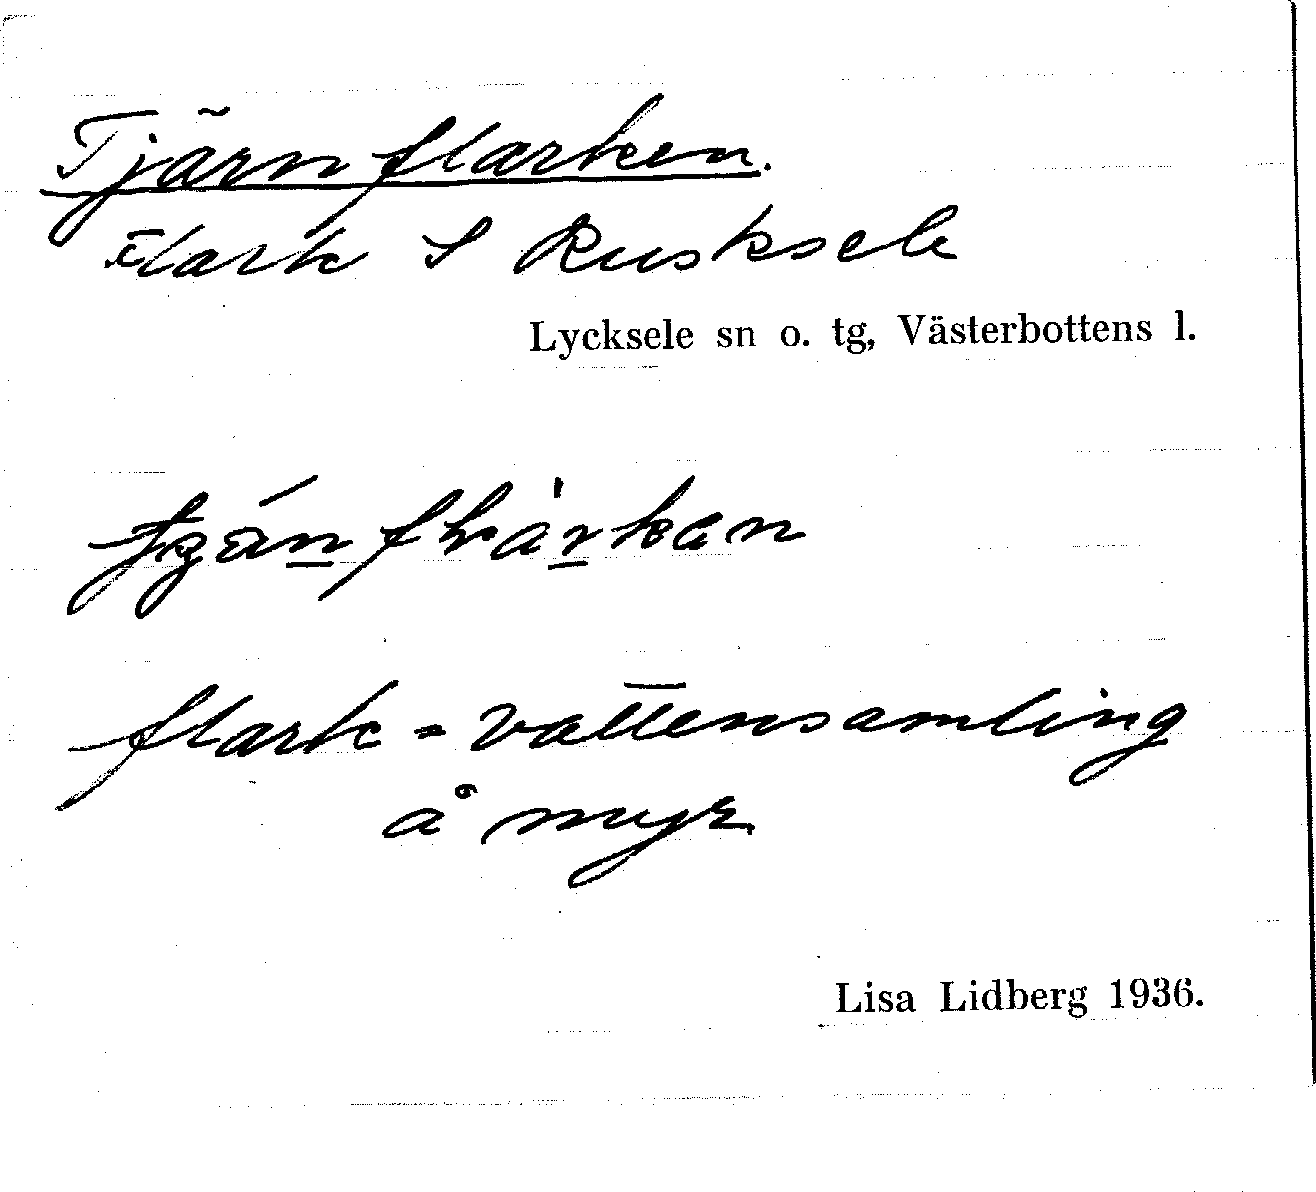 Tjärnflarken.
Flark S Rusksele
Lycksele sn o. tg, Västerbottens l.
flark = vattensamling
å myr
Lisa Lidberg 1936.